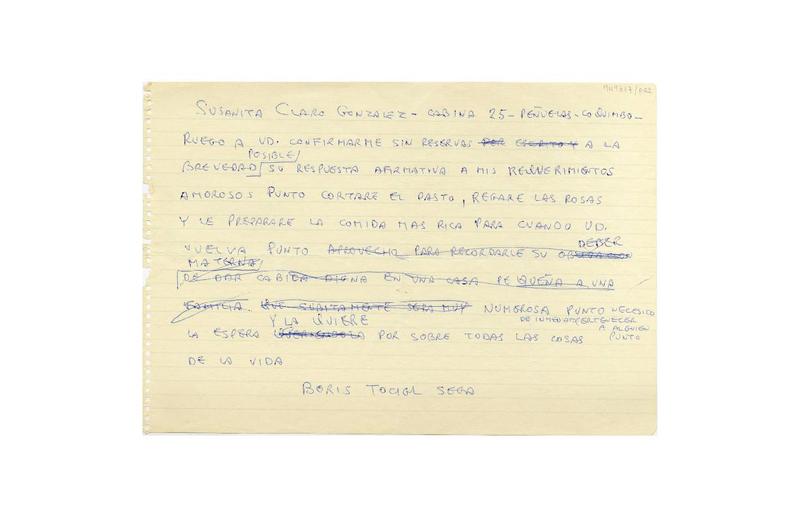 SUSANITA CLARO GONZALEZ - CABINA 25 - PEÑUELAS - COQUIMBO -
RUEGO A UD. CONFIRMARME SIN RESERVAS POR ESCRITO Y A LA
POSIBLE
BREVEDAD SU RESPUESTA AFIRMATIVA A MIS REQUERIMIENTOS
AMOROSOS PUNTO CORTARE EL PASTO, REGARE LAS ROSAS
Y LE PREPARARE LA COMIDA MAS RICA PARA CUANDO UD.
DEBER
VUELVA PUNTO APROVECHO PARA RECORDARLE SU
MATERNA
DE DAR CABIDA DIGNA EN UNA CASA PEQUEÑA A UNA
FAMILIA. QUE SUBITAMENTE SERA MUY NUMEROSA PUNTO NECESITO
DE INMEDIATO PERTENECER
A ALGUIEN
PUNTO
Y LA QUIERE
LA ESPERA POR SOBRE TODAS LAS COSAS
DE LA VIDA
BORIS TOCIGL SEGA